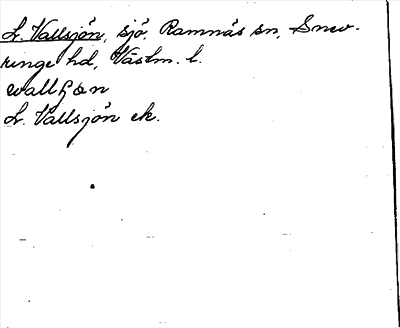 L. Vallsjön, sjö, Ramnäs sn, Snev-
ringe hd, Västm. l.
L. Vallsjön ek.